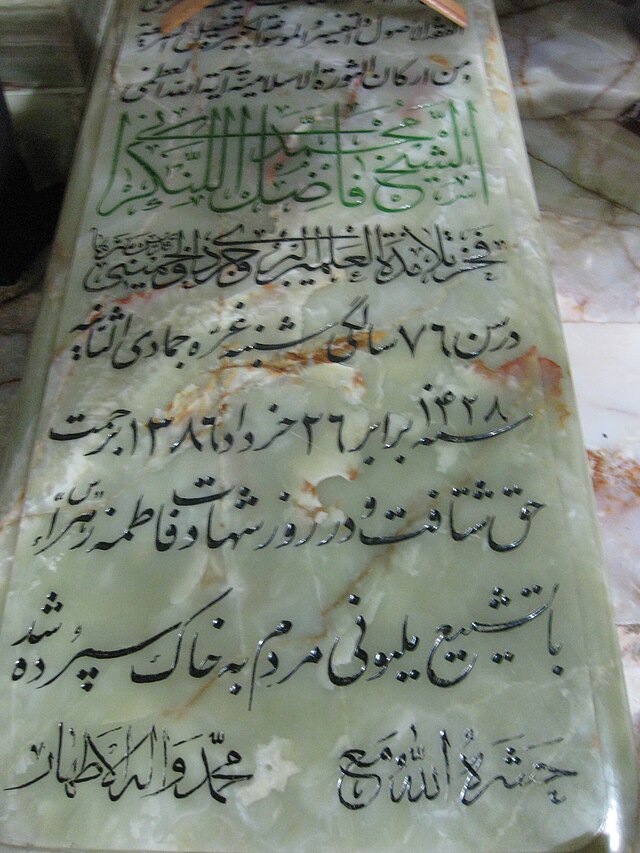 من ارکان الثورة الاسلامیة آیة الله العظمی
الشیخ محمد فاضل اللنکرانی
فخر تلامذة العلمین البروجردی و الخمینی
در سن ۷۶ سالگی شنبه غره جمادی الثانیه
سنه ۱۴۲۸ برابر ۲۶ خرداد ۱۳۸۶ برحمت
حق شتافت و در روز شهادت فاطمه زهراء س
با تشییع میلیونی مردم به خاک سپرده شد
حشره الله مع محمد و اله الاطهار